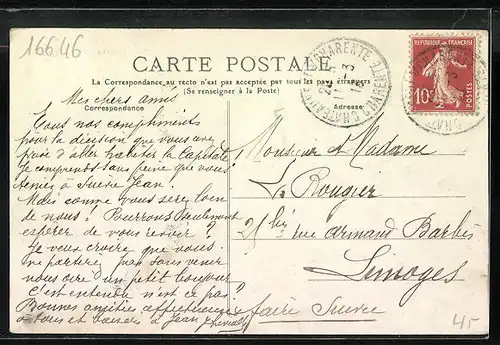 16646
CARTE POSTALE
La Correspondance au recto n'est pas acceptée par tous les pays étrangers
(Se renseigner à la Poste)
Correspondance
Adresse
REPUBLIQUE FRANÇAISE
10c
POSTES
CHARENTE
Mes chers amis
Tous nos compliments
pour la décision que vous avez
prise d'aller habiter la Capitale
Je comprends sans peine que vous
teniez à suivre Jean.
Mais comme vous serez loin
de nous! Pourrons seulement
espérer de vous revoir?
Je veux croire que vous
ne partirez pas sans venir
nous dire un petit bonjour
C'est entendu n'est ce pas?
Bonnes amitiés affectueuses
à tous et baisers à Jean
Monsieur et Madame
L. Rougier
25 bis rue Armand Barbès
Limoges
faire Suivre
4,-